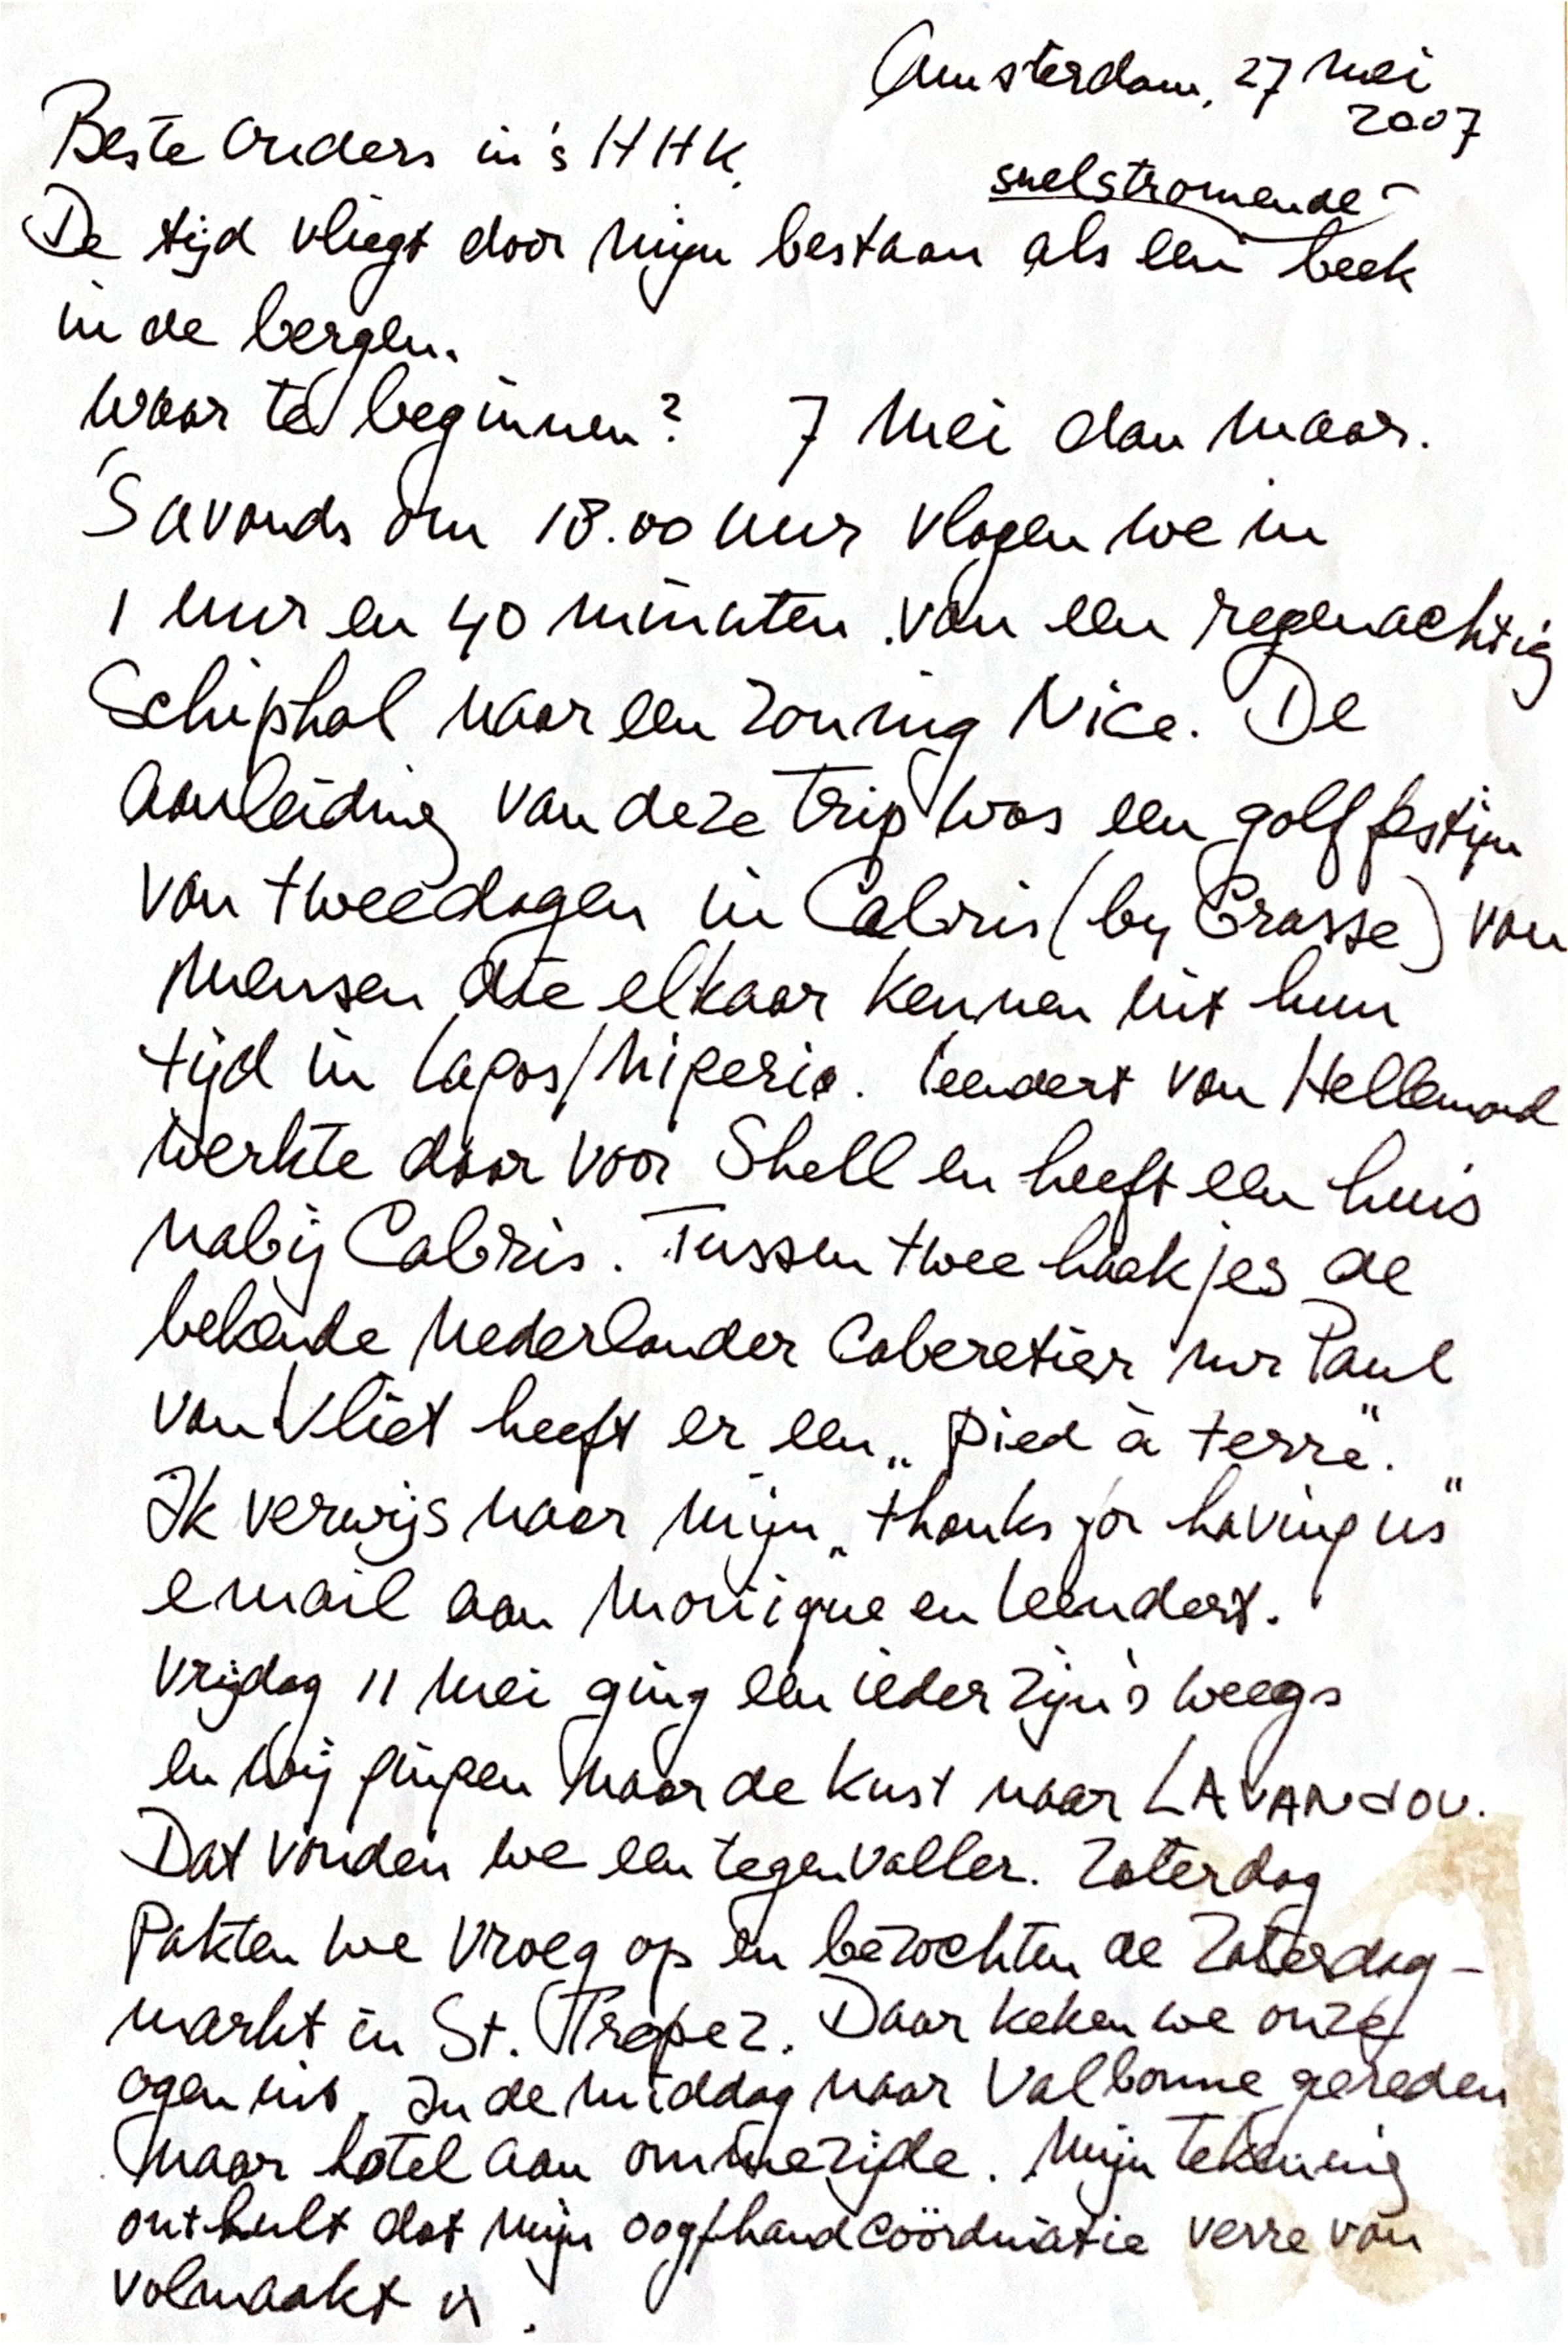 Amsterdam, 27 mei
2007
Beste Ouders in 's HHK,
snelstromende
De tijd vliegt door mijn bestaan als een beek
in de bergen.
Waar te beginnen? 7 mei dan maar.
's avonds om 18.00 uur vlogen we in
1 uur en 40 minuten van een regenachtig
Schiphol naar een zonnig Nice. De
aanleiding van deze trip was een golffestijn
van twee dagen in Cabris (by Grasse) van
mensen die elkaar kennen uit hun
tijd in Lagos/Nigeria. Leendert van Hellemond
werkte daar voor Shell en heeft een huis
nabij Cabris. Tussen twee haakjes de
bekende Nederlander Caberetier mr Paul
van Vliet heeft er een „pied à terre".
Ik verwijs naar mijn „thanks for having us"
email aan Monique en Leendert.
Vrijdag 11 mei ging een ieder zijn's weegs
en wij gingen naar de kust naar LAVANDOU.
Dat vonden we een tegenvaller. Zaterdag
pakten we vroeg op en bezochten de Zaterdag-
markt in St. Tropez. Daar keken we onze
ogen uit. In de middag naar Valbonne gereden
naar hotel aan ommezijde. Mijn tekening
onthult dat mijn oog/handcoördinatie verre van
volmaakt is.